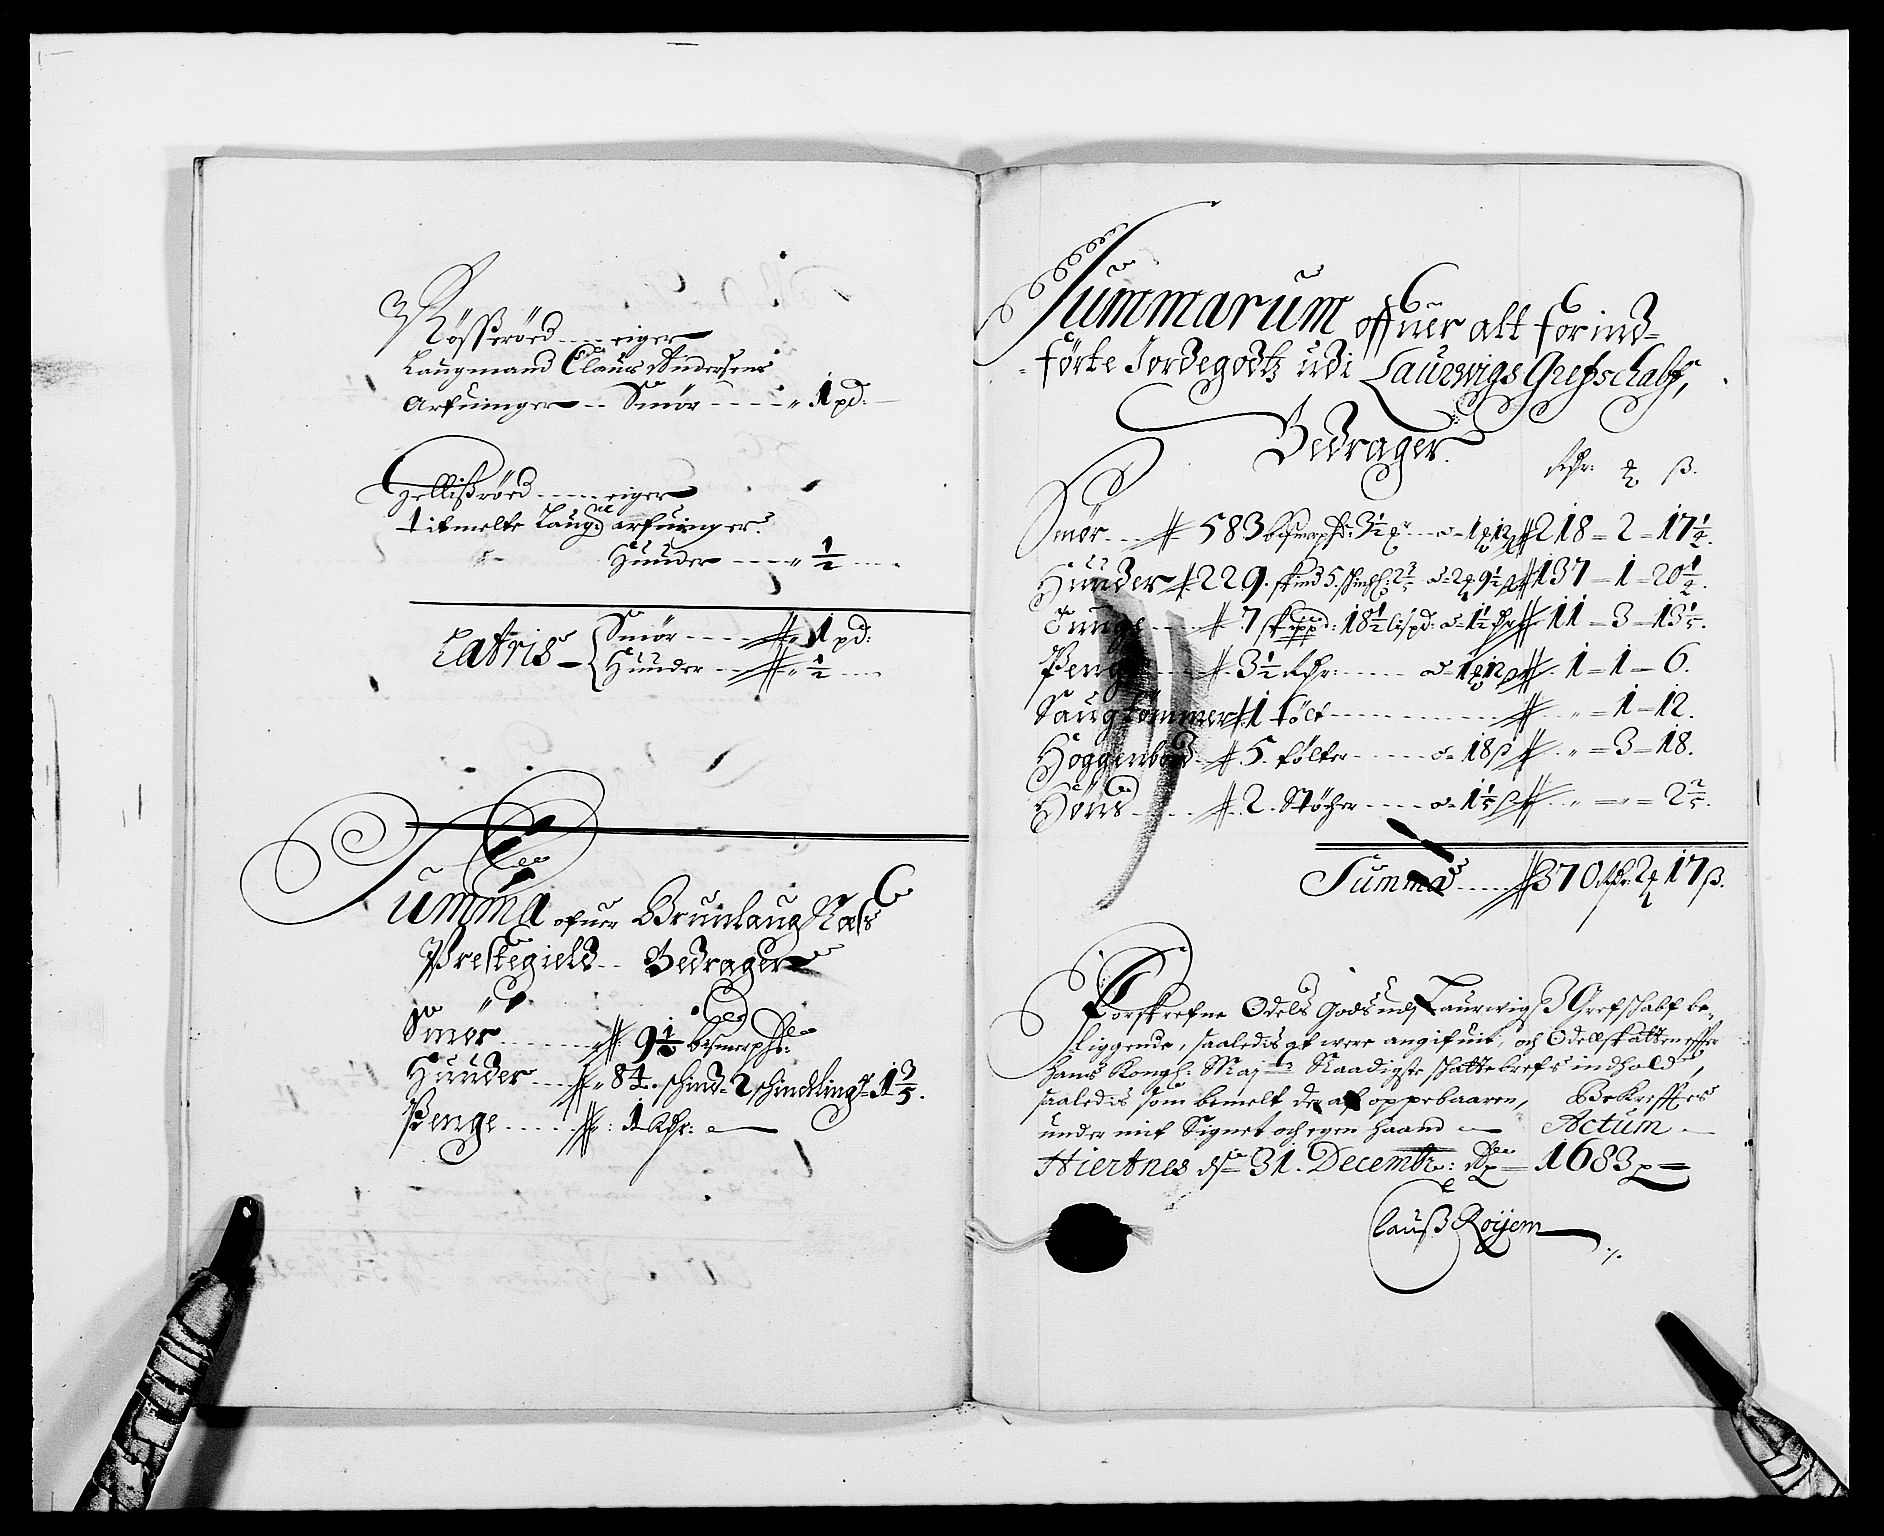 Rösseröed .... eiger
Laugmand Claus Andersens
Arfuinger .. Smör ---- „ 1 pd:
Gellissröed ..... eiger
titmelte Laug: arfuinger.
Huuder ---- „ ½
Latris – Smör ---- „ 1 pd:
Huuder -- „ ½
Summa ofuer Brunlaug Næs
Prestegield .. Bedrager
Smör ........ 9½ bismerpd:
Huuder ... 84. skind 2 skindling
Penge ..... 1 Rdr:
Summarum offuer alt forind-
förte Jordegodtz udi Laurwigs Grefschabf,
Bedrager.
Rdr: ß.
Smör ... 583 bismerpd: 3½ 218 = 2 = 17½.
Huuder 229. skind 5. 137 = 1 = 20½.
Tunge .... 7 skippd: 18½ lispd: a 1½ Rdr 11 = 3 = 13
Penge .... 3½ Rdr: ...... 1 = 1 = 6.
Saugtömmer 1 tölt .......... „ = 1 = 12.
Höggenbord 5. tölter ...... a 18 ß „ = 3 = 18.
Höns ..... 2. Stöcher ..... „ = „ = 2
Summa .... 370 Rdr: 2 17 ß.
Forskrefne Odels Gods udj Laurwigs Grefschabf be-
liggende, saaledis at were angifuit, och Odellskatten effter
hans Kongl: Maj: Naadigste skattebrefs indhold,
saaledis som bemelt der af oppebaaren, Bekreffter
under mit Signet och egen haand – Actum –
Hiertnes d. 31. Decembr: Ao 1683
Clauss Röyem